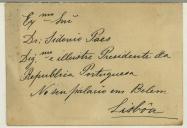 Ex.mo Snr.
Dr. Sidonio Paes
Dig.mo e illustre Presidente da
Republica Portuguesa
No seu palacio em Belem
Lisbôa